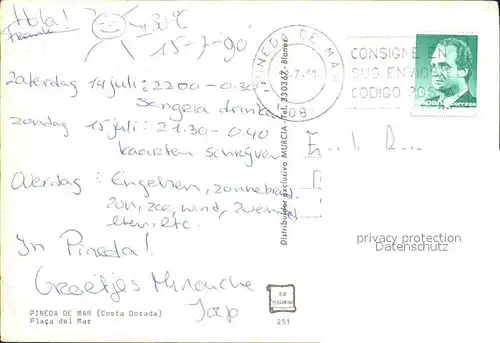 Hola!
Frank
30°C
15-7-90
Zaterdag 14 juli: 22.00 - 0.30
Sangria drinken
Zondag 15 juli: 21.30 - 0.40
kaarten schrijven
Overdag: Engelsen, zonnebrand,
zon, zee, wind, zwemmen
eten, etc.
In Pineda!
Groetjes Minouche
Jap
PINEDA DE MAR (Costa Dorada)
Plaça del Mar
Distribuidor exclusivo MURCIA - Tel. 330367 - Blanes
PINEDA DE MAR
CONSIGNE EN
SUS ENVIOS EL
CODIGO POSTAL
España correos
privacy protection
Datenschutz
PERGAMINO
251